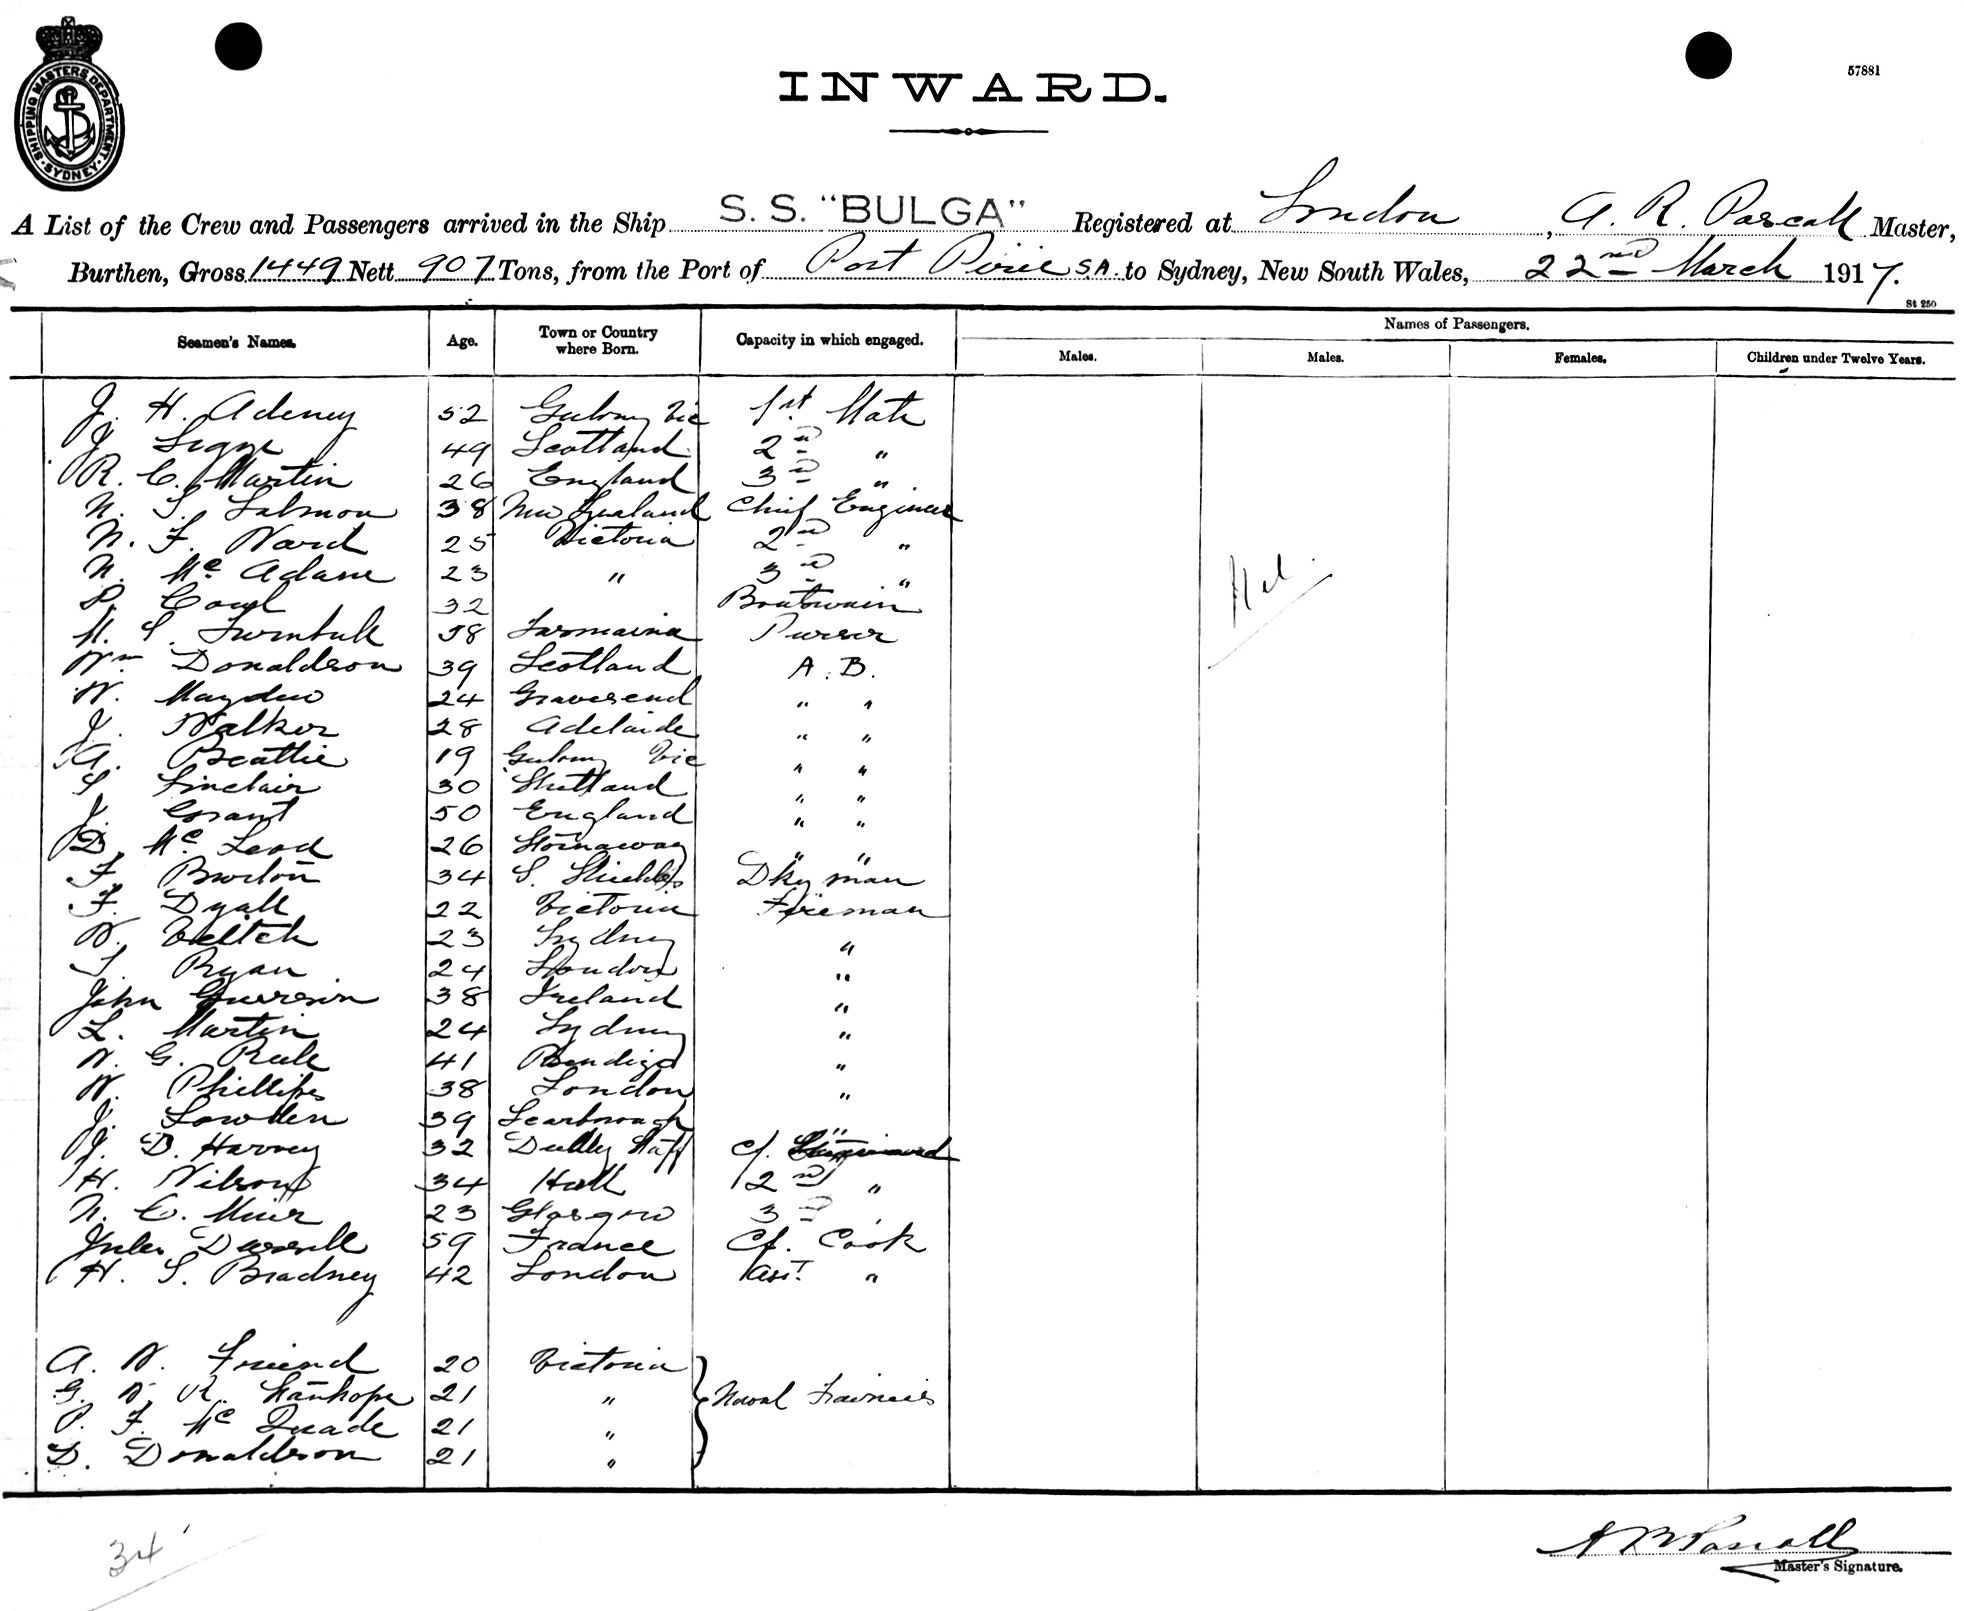 SHIPPING MASTERS DEPARTMENT · SYDNEY ·
57881
INWARD.
A List of the Crew and Passengers arrived in the Ship S. S. "BULGA" Registered at London, A. R. Pascall Master,
Burthen, Gross 1449 Nett 907 Tons, from the Port of Port Pirie S.A. to Sydney, New South Wales, 22nd March 1917.
St 250
Names of Passengers.
Seamen's Names. Age. Town or Country where Born. Capacity in which engaged. Males. Males. Females. Children under Twelve Years.
J. H. Adeney 52 Geelong Vic 1st Mate
J. 49 Scotland 2nd "
R. C. Martin 26 England 3rd "
N. S. Salmon 38 New Zealand Chief Engineer
W. F. Ward 25 Victoria 2nd "
N. Mc Adam 23 " 3rd "
P. Cowl 32 Boatswain
Nil.
M. S. Turnbull 58 Tasmainia Purser
Wm Donaldson 39 Scotland A. B.
W. Mayden 24 Gravesend " "
J. Walker 28 Adelaide " "
A. Beattie 19 Geelong Vic " "
S Sinclair 30 Shetland " "
J. Grant 50 England " "
D. Mc Leod 26 Stornaway " "
F. Burton 34 S. Shields Dky man
F. Dyall 22 Victoria Fireman
W. Veitch 23 Sydney "
T. Ryan 24 London "
John 38 Ireland "
L. Martin 24 Sydney "
W. G. Rule 41 Bendigo "
W. Phillips 38 London "
J. Lowden 39 Scarborough "
J. B. Harvey 32 Dudley Staff Cf. Steward
H. Wilson 34 Hull 2nd "
N. C. Muir 23 Glasgow 3rd "
Jules 59 France Cf. Cook
H. S. Bradney 42 London Asst "
A. W. Friend 20 Victoria
G. W. R. Stanhope 21 " Naval Trainees
P. F. Mc Quade 21 "
D. Donaldson 21 "
34
A R Pascall
Master's Signature.